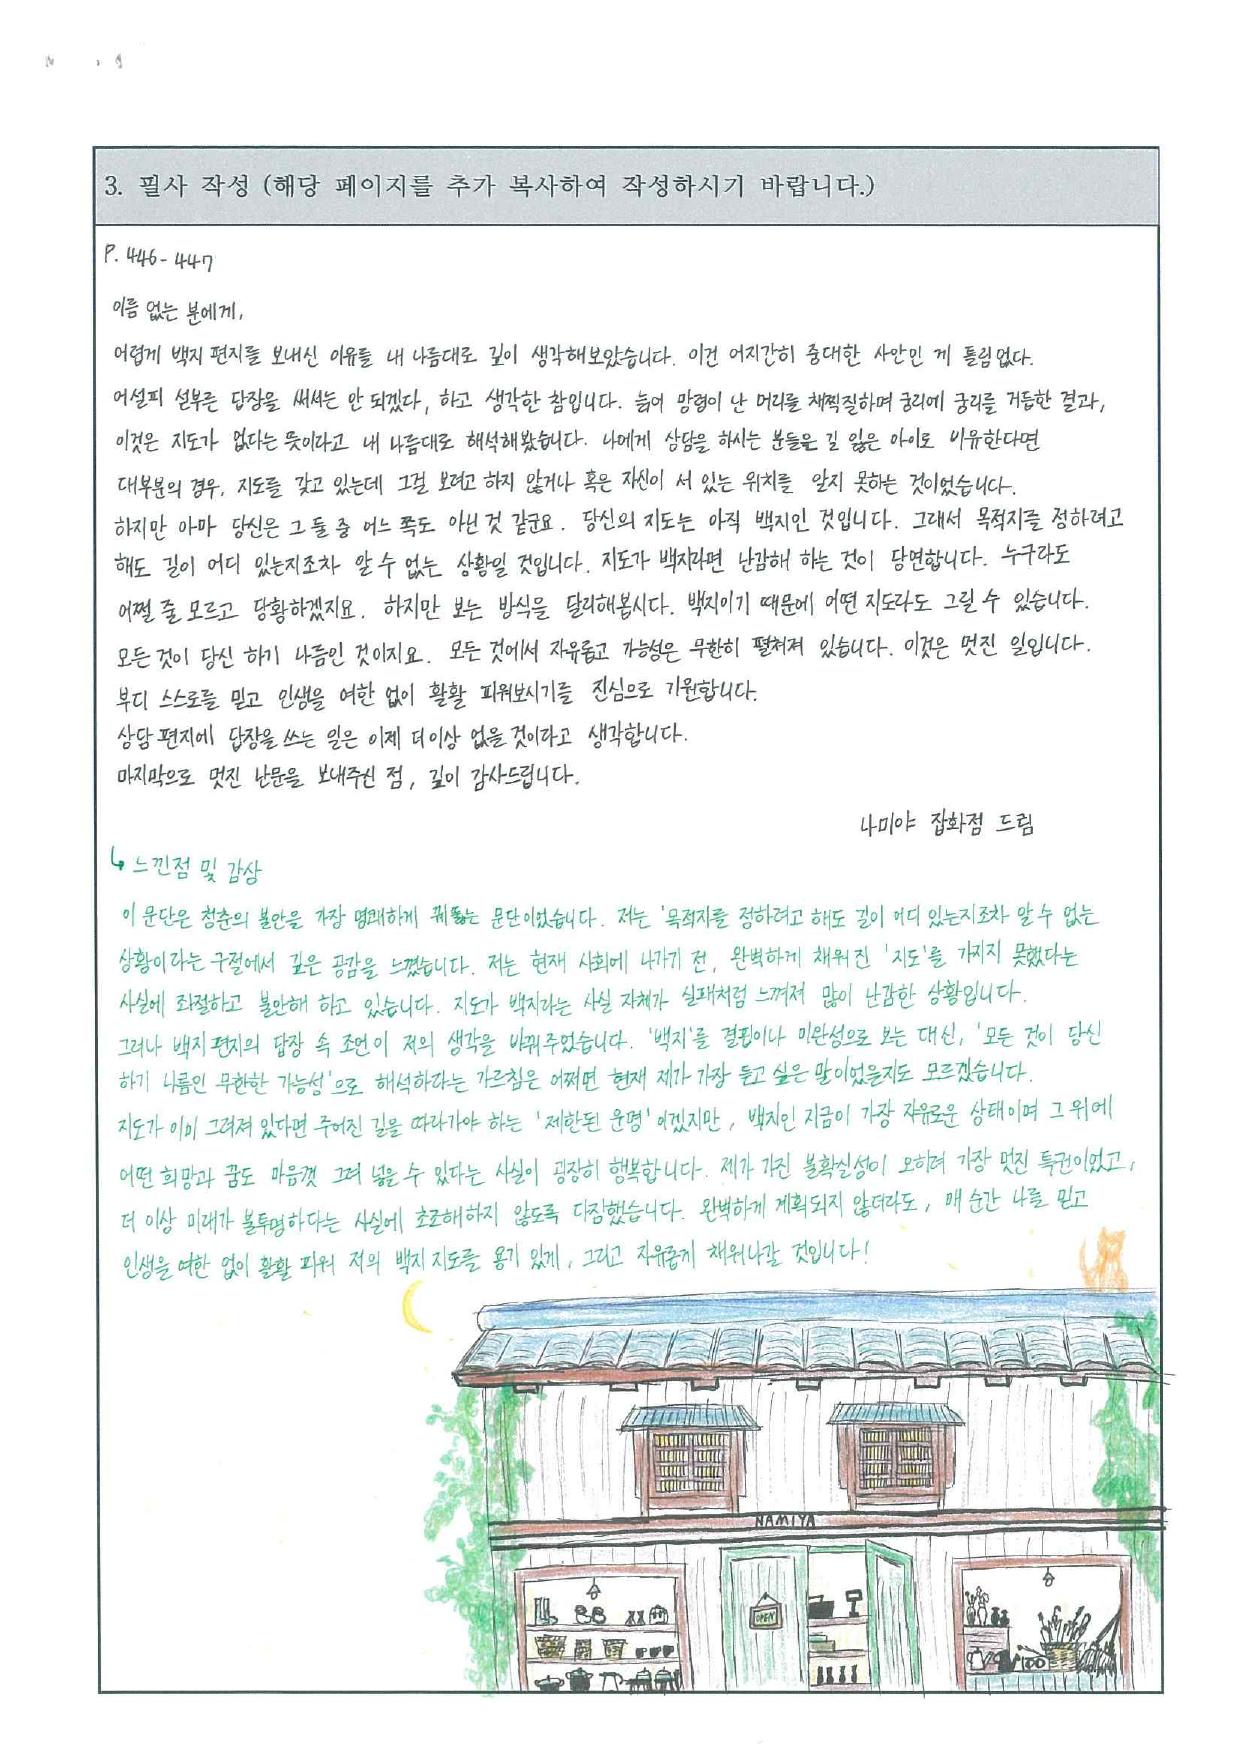 3. 필사 작성 (해당 페이지를 추가 복사하여 작성하시기 바랍니다.)
P. 446-447
이름 없는 분에게,
어렵게 백지 편지를 보내신 이유를 내 나름대로 깊이 생각해보았습니다. 이건 어지간히 중대한 사안인 게 틀림없다.
어설피 섣부른 답장을 써서는 안 되겠다, 하고 생각한 참입니다. 늙어 망령이 난 머리를 채찍질하며 궁리에 궁리를 거듭한 결과,
이것은 지도가 없다는 뜻이라고 내 나름대로 해석해봤습니다. 나에게 상담을 하시는 분들을 길 잃은 아이로 비유한다면
대부분의 경우, 지도를 갖고 있는데 그걸 보려고 하지 않거나 혹은 자신이 서 있는 위치를 알지 못하는 것이었습니다.
하지만 아마 당신은 그 둘 중 어느 쪽도 아닌 것 같군요. 당신의 지도는 아직 백지인 것입니다. 그래서 목적지를 정하려고
해도 길이 어디 있는지조차 알 수 없는 상황일 것입니다. 지도가 백지라면 난감해 하는 것이 당연합니다. 누구라도
어쩔 줄 모르고 당황하겠지요. 하지만 보는 방식을 달리해봅시다. 백지이기 때문에 어떤 지도라도 그릴 수 있습니다.
모든 것이 당신 하기 나름인 것이지요. 모든 것에서 자유롭고 가능성은 무한히 펼쳐져 있습니다. 이것은 멋진 일입니다.
부디 스스로를 믿고 인생을 여한 없이 활활 피워보시기를 진심으로 기원합니다.
상담 편지에 답장을 쓰는 일은 이제 더이상 없을 것이라고 생각합니다.
마지막으로 멋진 난문을 보내주신 점, 깊이 감사드립니다.
나미야 잡화점 드림
↳ 느낀점 및 감상
이 문단은 청춘의 불안을 가장 명쾌하게 꿰뚫는 문단이었습니다. 저는 '목적지를 정하려고 해도 길이 어디 있는지조차 알 수 없는
상황이라는 구절에서 깊은 공감을 느꼈습니다. 저는 현재 사회에 나가기 전, 완벽하게 채워진 '지도'를 가지지 못했다는
사실에 좌절하고 불안해 하고 있습니다. 지도가 백지라는 사실 자체가 실패처럼 느껴져 많이 난감한 상황입니다.
그러나 백지 편지의 답장 속 조언이 저의 생각을 바꿔주었습니다. '백지'를 결핍이나 미완성으로 보는 대신, '모든 것이 당신
하기 나름인 무한한 가능성'으로 해석하라는 가르침은 어쩌면 현재 제가 가장 듣고 싶은 말이었을지도 모르겠습니다.
지도가 이미 그려져 있다면 주어진 길을 따라가야 하는 '제한된 운명'이겠지만, 백지인 지금이 가장 자유로운 상태이며 그 위에
어떤 희망과 꿈도 마음껏 그려 넣을 수 있다는 사실이 굉장히 행복합니다. 제가 가진 불확실성이 오히려 가장 멋진 특권이었고,
더 이상 미래가 불투명하다는 사실에 초조해하지 않도록 다짐했습니다. 완벽하게 계획되지 않더라도, 매 순간 나를 믿고
인생을 여한 없이 활활 피워 저의 백지 지도를 용기 있게, 그리고 자유롭게 채워나갈 것입니다!
NAMIYA
OPEN